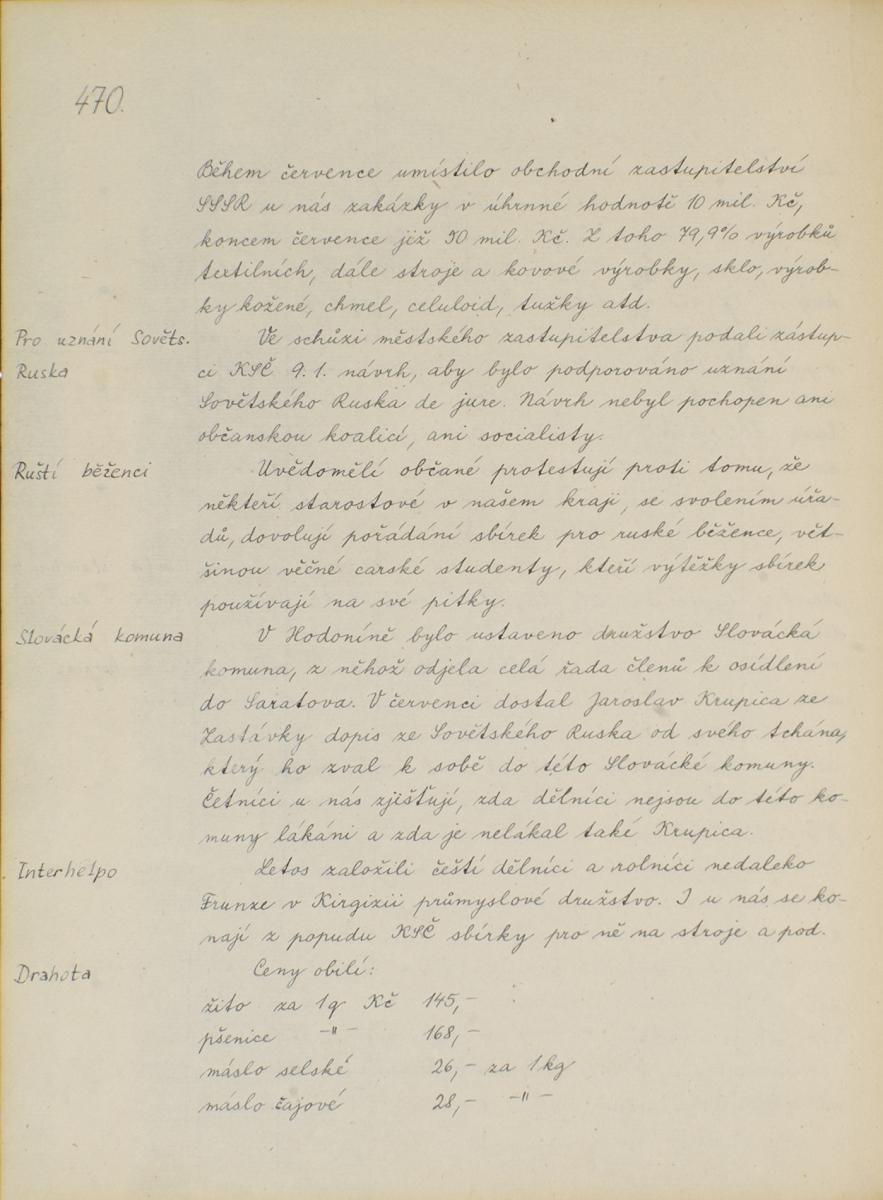 470.
Během července umístilo obchodní zastupitelství
SSSR u nás zakázky v úhrnné hodnotě 10 mil. Kč,
koncem července již 50 mil. Kč. Z toho 79,9% výrobků
textilních, dále stroje a kovové výrobky, sklo, výrob-
ky kožené, chmel, celuloid, tužky atd.
Pro uznání Sověts. Ve schůzi městského zastupitelstva podali zástup-
Ruska ci KSČ 9.1. návrh, aby bylo podporováno uznání
Sovětského Ruska de jure. Návrh nebyl pochopen ani
občanskou koalicí, ani socialisty.
Ruští běženci Uvědomělí občané protestují proti tomu, že
někteří starostové v našem kraji, se svolením úřa-
dů, dovolují pořádání sbírek pro ruské běžence, vět-
šinou věčné carské studenty, kteří výtěžky sbírek
používají na své pitky.
Slovácká komuna V Hodoníně bylo ustaveno družstvo Slovácká
komuna, z něhož odjela celá řada členů k osídlení
do Saratova. V červenci dostal Jaroslav Krupica ze
Zastávky dopis ze Sovětského Ruska od svého tchána,
který ho zval k sobě do této Slovácké komuny.
Četníci u nás zjišťují, zda dělníci nejsou do této ko-
muny lákáni a zda je nelákal také Krupica.
Interhelpo Letos založili čeští dělníci a rolníci nedaleko
Frunze v Kirgizii průmyslové družstvo. I u nás se ko-
nají z popudu KSČ sbírky pro ně na stroje a pod.
Drahota Ceny obilí:
žito za 1q Kč 145,-
pšenice -"- 168,-
máslo selské 26,- za 1kg
máslo čajové 28,- -"-